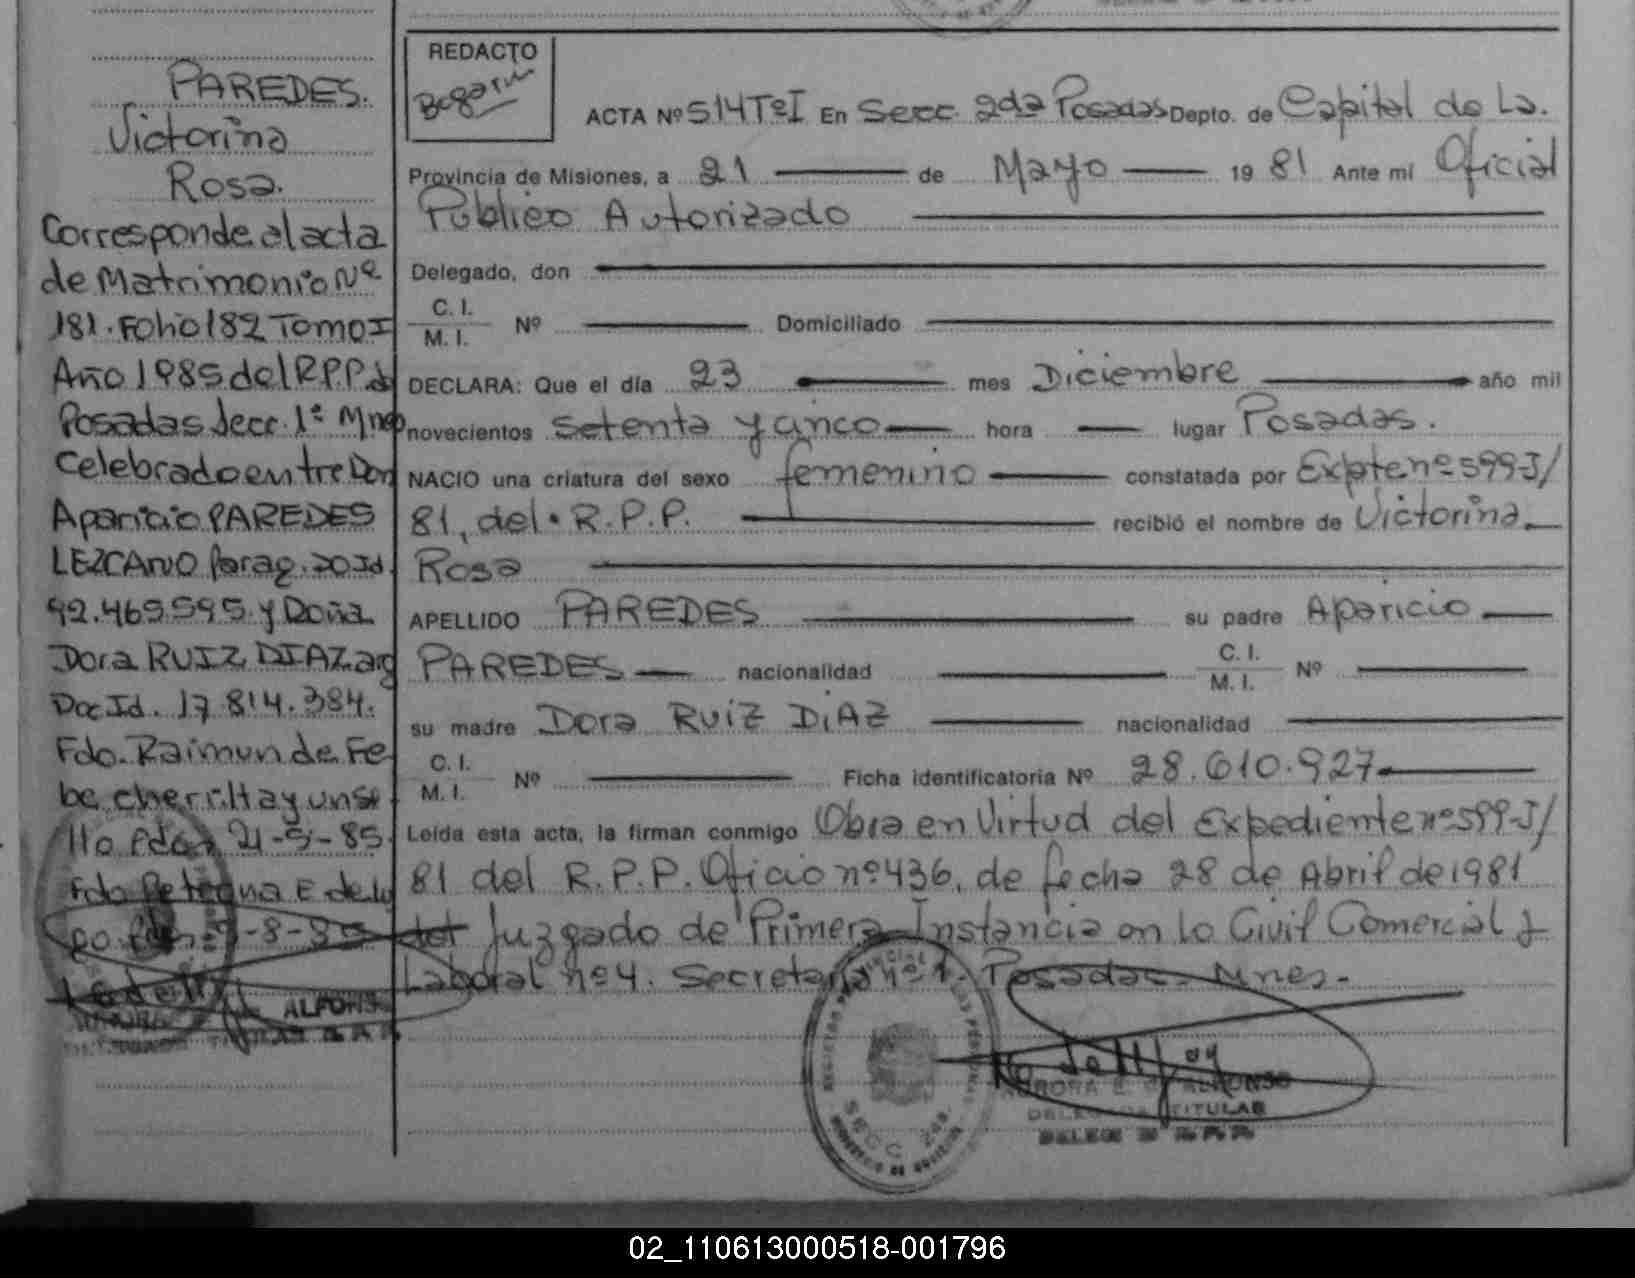 PAREDES.
Victorina
Rosa.
Corresponde al acta
de Matrimonio Nº
181. Folio 182 Tomo I
Año 1985 del R.P.P. de
Posadas Secc. 1ª Mnes
Celebrado entre Don
Aparicio PAREDES
LEZCANO parag. Do Id.
92.469.595. y Doña
Dora RUIZ DIAZ arg
Doc Id. 17.814.384.
Fdo. Raimunda Fe
be cherr. Hay un se
llo Fdo. 21-5-85.
Fdo
REDACTO
ACTA Nº 514 TºI En Secc. 2da Posadas Depto. de Capital de La.
Provincia de Misiones, a 21 de Mayo 19 81 Ante mi Oficial
Público Autorizado
Delegado, don
C. I.
M. I. Nº Domiciliado
DECLARA: Que el día 23 mes Diciembre año mil
novecientos setenta y cinco hora lugar Posadas.
NACIO una criatura del sexo femenino constatada por Expte nº 599-J/
81, del R.P.P. recibió el nombre de Victorina
Rosa
APELLIDO PAREDES su padre Aparicio
PAREDES nacionalidad C. I. M. I. Nº
su madre Dora RUIZ DIAZ nacionalidad
C. I.
M. I. Nº Ficha identificatoria Nº 28.610.927
Leída esta acta, la firman conmigo Obra en Virtud del Expediente nº 599-J/
81 del R.P.P. Oficio nº 436, de fecha 28 de Abril de 1981
del Juzgado de Primera Instancia en lo Civil Comercial y
Laboral nº 4. Secretaria nº 1. Posadas. Mnes.
ALFONSO
SECC 2da.
AURORA E. ALFONSO
TITULAR
02_110613000518-001796